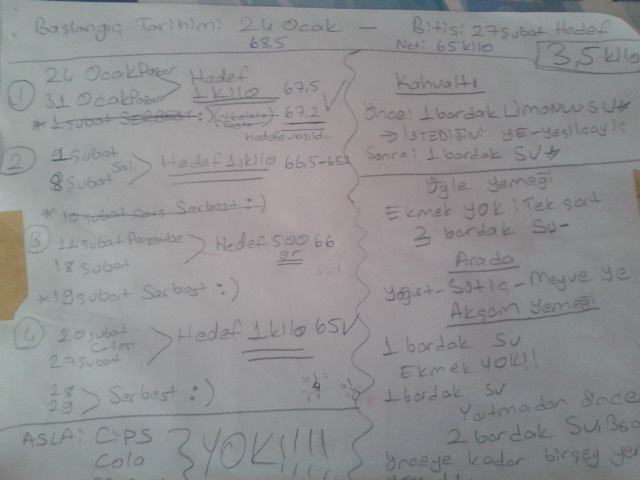 Başlangıç Tarihim: 24 Ocak — Bitiş: 27 Şubat Hedef
68,5 Net: 65 kilo 3,5 kilo
1 24 Ocak Pazar
31 Ocak Pazar
Hedef
1 kilo 67,5
* 1 Şubat SERBEST :) 67,2
2 1 Şubat
8 Şubat Salı
Hedef 1 kilo 66,5-
* 10 Şubat Serbest :)
3 11 Şubat Perşembe
18 Şubat
Hedef 500 66
gr
* 19 Şubat Serbest :)
4 20 Şubat
Cmtesi
27 Şubat
Hedef 1 kilo 65
28
29 Serbest :)
ASLA: CiPS
Cola
YOK!!!!
Kahvaltı
Önce: 1 bardak LiMONLU SU
→ iSTEDiĞiNi YE - yeşilçay iç
Sonra: 1 bardak SU
Öğle yemeği
Ekmek YOK! Tek şart
3 bardak Su-
Arada
Yoğurt - Sütiç - Meyve ye
Akşam Yemeği
1 bardak SU
Ekmek YOK!!
1 bardak SU
Yatmadan önce
2 bardak SU,
önceye kadar birşey yeme